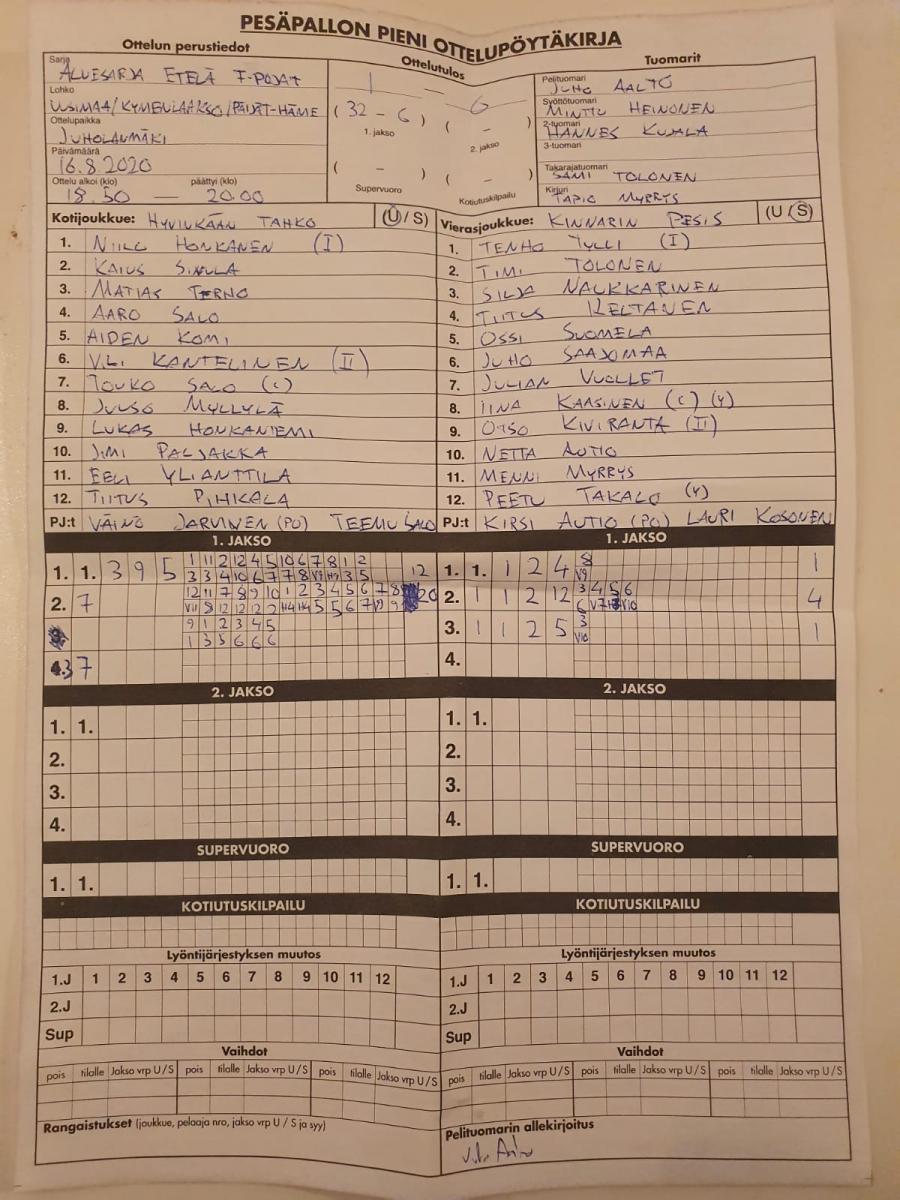 PESÄPALLON PIENI OTTELUPÖYTÄKIRJA
Ottelun perustiedot
Sarja
ALUESARJA ETELÄ F-POJAT
Lohko
UUSIMAA/KYMENLAAKSO/PÄIJÄT-HÄME
Ottelupaikka
JUHOLANMÄKI
Päivämäärä
16.8.2020
Ottelu alkoi (klo) päättyi (klo)
18.50 — 20.00
Ottelutulos
1 — 6
(32 - 6) ( - )
1. jakso 2. jakso
( - ) ( - )
Supervuoro Kotiutuskilpailu
Tuomarit
Pelituomari
JUHO AALTO
Syöttötuomari
MINTTU HEINONEN
2-tuomari
HANNES KUJALA
3-tuomari
Takarajatuomari
SAMI TOLONEN
Kirjuri
TAPIO MYRRYS
Kotijoukkue: HYVINKÄÄN TAHKO (U / S)
1. NIILO HONKANEN (I)
2. KAIUS SINULA
3. MATIAS TERHO
4. AARO SALO
5. AIDEN KOMI
6. VILI KANTELINEN (II)
7. TOUKO SALO (C)
8. JUUSO MYLLYLÄ
9. LUKAS HONKANIEMI
10. JIMI PALJAKKA
11. EELI YLIANTTILA
12. TIITUS PIHKALA
PJ:t VÄINÖ JÄRVINEN (PJ) TEEMU SALO
Vierasjoukkue: KINNARIN PESIS (U / S)
1. TENHO TYLLI (I)
2. TIMI TOLONEN
3. SILJA NAUKKARINEN
4. TIITUS KELTANEN
5. OSSI SUOMELA
6. JUHO SAAJOMAA
7. JULIAN VUOLLET
8. IINA KAASINEN (C) (Y)
9. OTSO KIVIRANTA (II)
10. NETTA AUTIO
11. MENNI MYRRYS
12. PEETU TAKALO (Y)
PJ:t KIRSI AUTIO (PJ) LAURI KOSONEN
1. JAKSO
1. 1. 3 9 5 1 11 2 12 4 5 10 6 7 8 1 2
3 3 4 10 6 7 7 8 V9 H9 3 5 12
2. 7 12 11 7 8 9 10 1 2 3 4 5 6 7 8 20
V11 8 12 12 2 2 H4 H4 5 5 6 7 V9 9
9 1 2 3 4 5
1 3 5 6 6 6
3 7
1. JAKSO
1. 1. 1 2 4 8 1
V9
2. 1 1 2 12 3 4 5 6 4
6 V7 V10
3. 1 1 2 5 3 1
V10
4.
2. JAKSO
1. 1.
2.
3.
4.
2. JAKSO
1. 1.
2.
3.
4.
SUPERVUORO
1. 1.
SUPERVUORO
1. 1.
KOTIUTUSKILPAILU
KOTIUTUSKILPAILU
Lyöntijärjestyksen muutos
1.J 1 2 3 4 5 6 7 8 9 10 11 12
2.J
Sup
Lyöntijärjestyksen muutos
1.J 1 2 3 4 5 6 7 8 9 10 11 12
2.J
Sup
Vaihdot
pois tilalle Jakso vrp U / S pois tilalle Jakso vrp U / S pois tilalle Jakso vrp U / S
Vaihdot
pois tilalle Jakso vrp U / S pois tilalle Jakso vrp U / S pois tilalle Jakso vrp U / S
Rangaistukset (joukkue, pelaaja nro, jakso vrp U / S ja syy)
Pelituomarin allekirjoitus